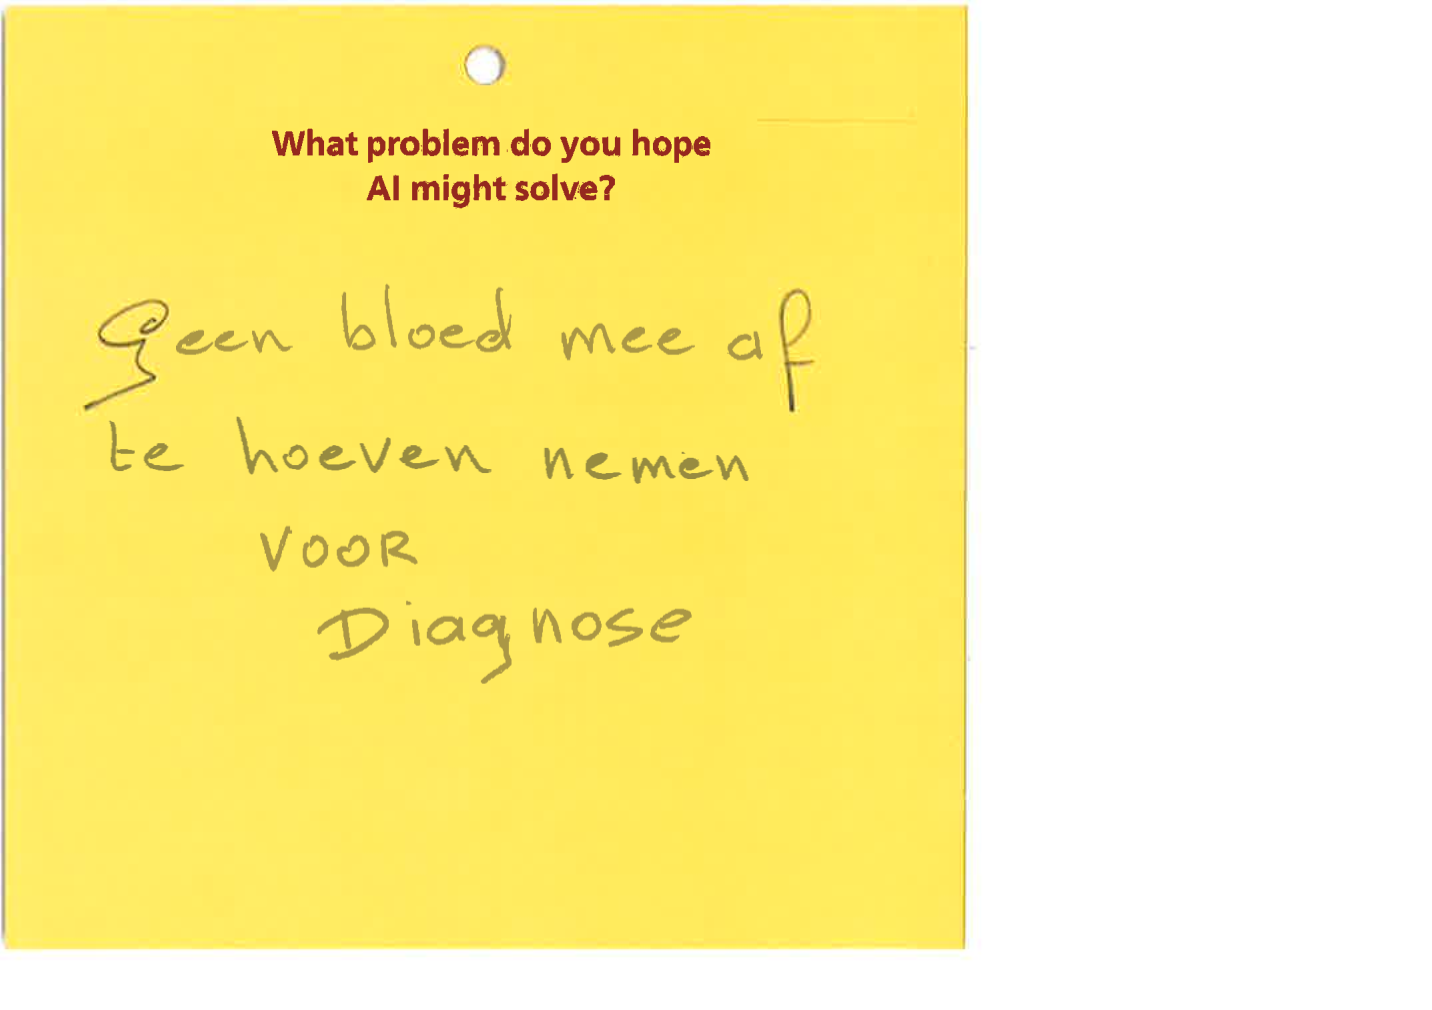 What problem do you hope
AI might solve?
Geen bloed mee af
te hoeven nemen
VOOR
Diagnose